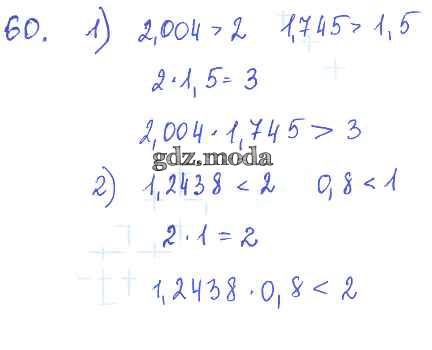 60. 1) 2,004 > 2   1,745 > 1,5
2 · 1,5 = 3
2,004 · 1,745 > 3
gdz.moda
2) 1,2438 < 2   0,8 < 1
2 · 1 = 2
1,2438 · 0,8 < 2